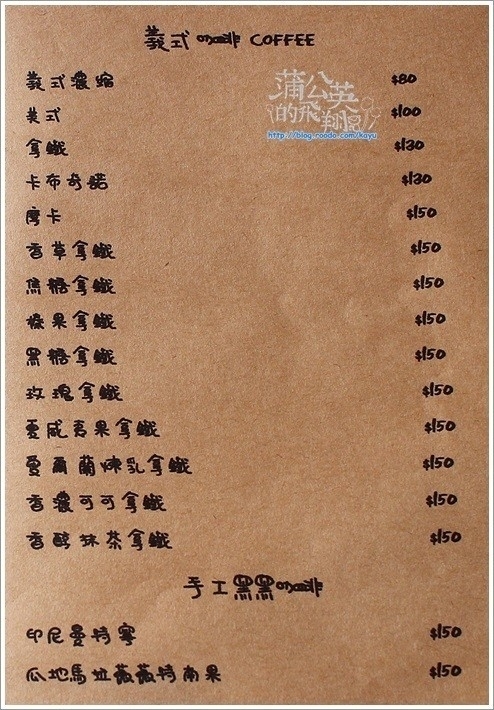 義式咖啡 COFFEE
蒲公英
的飛翔
http://blog.roodo.com/kayu
義式濃縮 $80
美式 $100
拿鐵 $130
卡布奇諾 $130
摩卡 $150
香草拿鐵 $150
焦糖拿鐵 $150
榛果拿鐵 $150
黑糖拿鐵 $150
玫瑰拿鐵 $150
夏威夷果拿鐵 $150
愛爾蘭煉乳拿鐵 $150
香濃可可拿鐵 $150
香醇抹茶拿鐵 $150
手工黑黑咖啡
印尼曼特寧 $150
瓜地馬拉薇薇特南果 $150